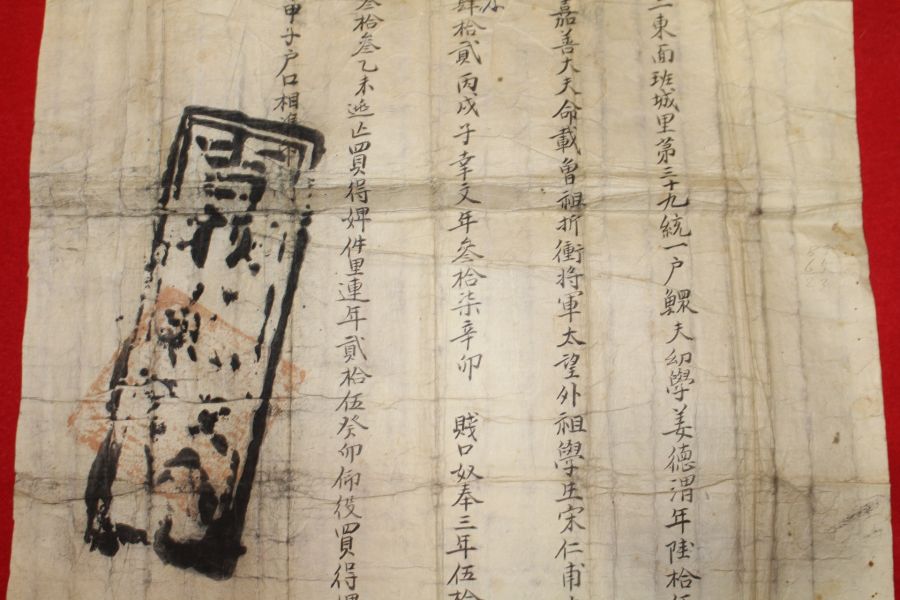 東面班城里第三十九統一户鰥夫幼學姜德渭年陸拾伍
嘉善大夫命載曾祖折衝將軍太望外祖學生宋仁甫
肆拾貳丙戌子幸文年叁拾柒辛卯 賤口奴奉三年伍拾
叁拾叁乙未逃亡買得婢件里連年貳拾伍癸卯仰役買得婢
甲子户口相準